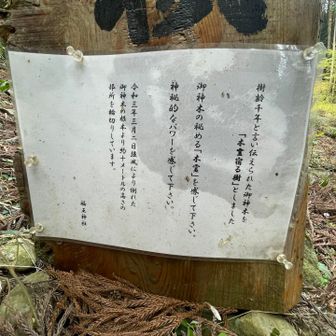 樹齢千年と言い伝えられた御神木を
「木霊宿る樹」としました
御神木の秘める「木霊」を感じて下さい。
神秘的なパワーを感じて下さい。
令和三年三月二日強風により倒れた
御神木の根本より約十メートルの高さの
箇所を輪切りしています。
福王神社